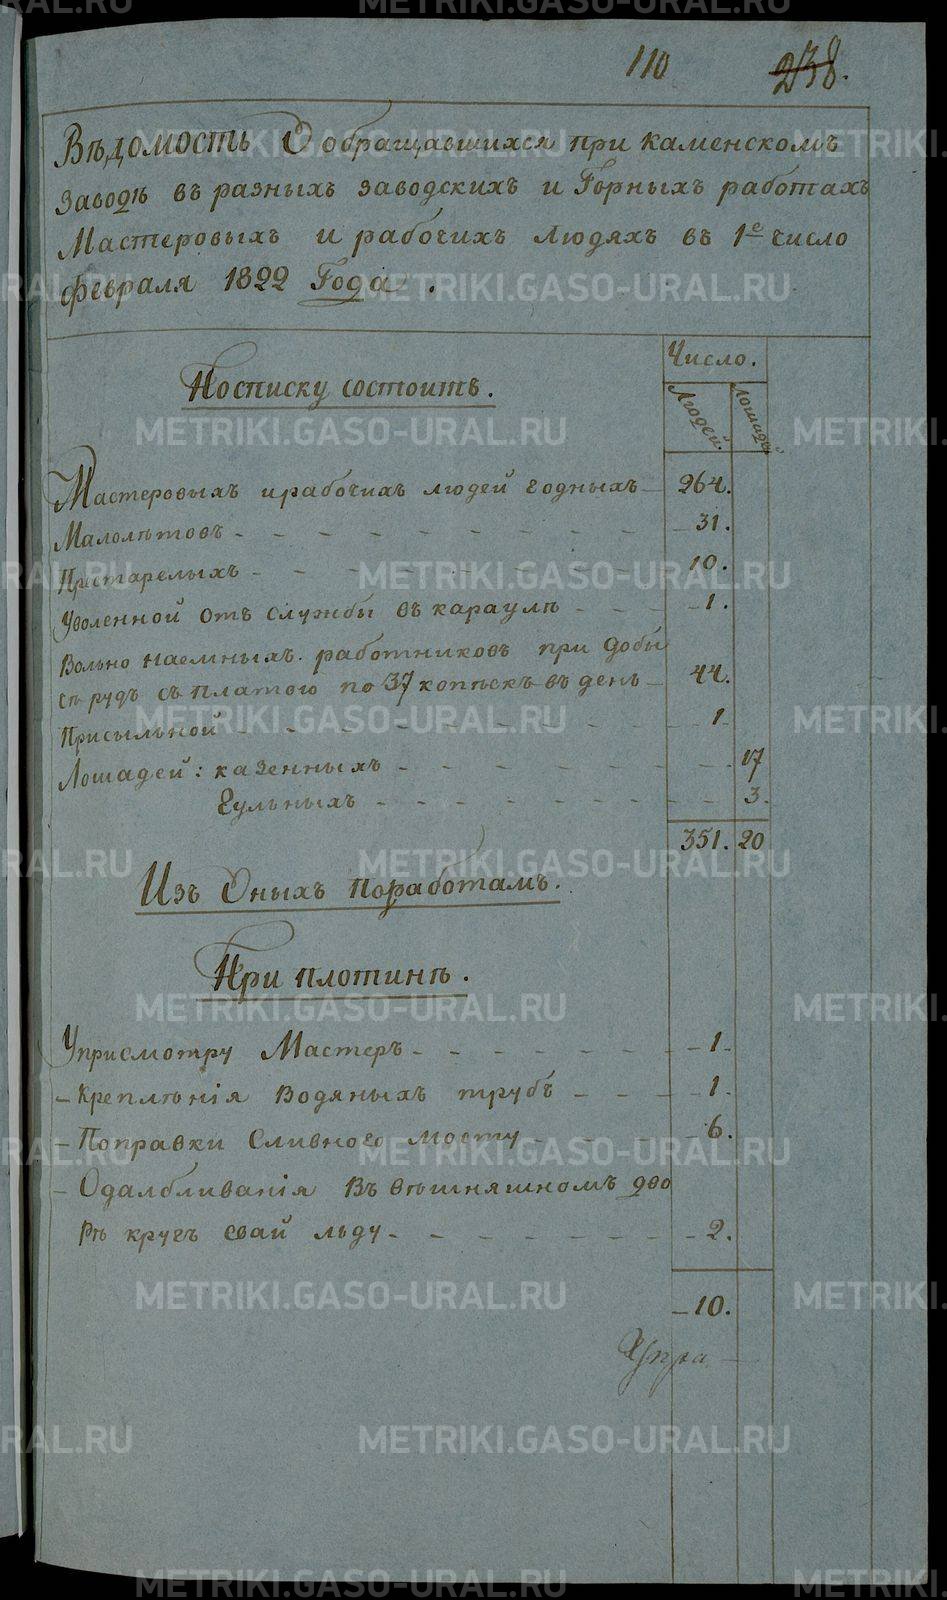 110
238.
Вѣдомость О обращавшихся при Каменскомъ
Заводѣ въ разныхъ заводскихъ и Горныхъ работахъ
Мастеровыхъ и рабочихъ людяхъ въ 1е число
февраля 1822 Года.
Число.
По списку состоитъ.
Людей. Лошадей
Мастеровыхъ и рабочихъ людей годныхъ 264.
Малолѣтовъ 31.
Престарелыхъ 10.
Уволенной отъ службы въ караулѣ 1.
Вольно наемныхъ работниковъ при добы
сѣ рудъ съ платою по 37 копѣекъ въ день 44.
Присыльной 1
Лошадей: казенныхъ 17
Гульныхъ 3.
351. 20
Изъ Оныхъ по работамъ.
При плотинѣ.
У присмотру Мастеръ 1
- Креплѣнія Водяныхъ трубъ 1.
- Поправки Сливного мосту 6.
- Одалбливанія Въ вѣшняшномъ дво
рѣ кругъ свай льду 2.
10.
METRIKI.GASO-URAL.RU